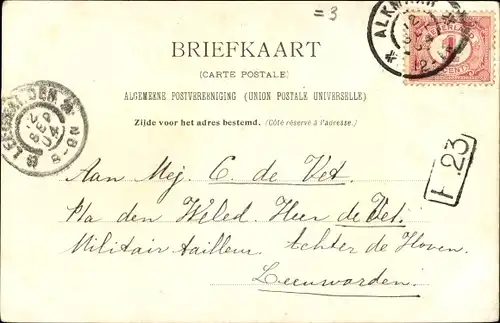 =3
ALKMAAR
BRIEFKAART
(CARTE POSTALE)
ALGEMEENE POSTVEREENIGING (UNION POSTALE UNIVERSELLE)
Zijde voor het adres bestemd. (Côté réservé à l'adresse.)
LEEUWARDEN
12 SEP 04
8-9N
F.23
Aan Mej. C de Vet.
P/a den Weled. Heer de Vet.
Militair tailleur. Achter de Hoven.
Leeuwarden.